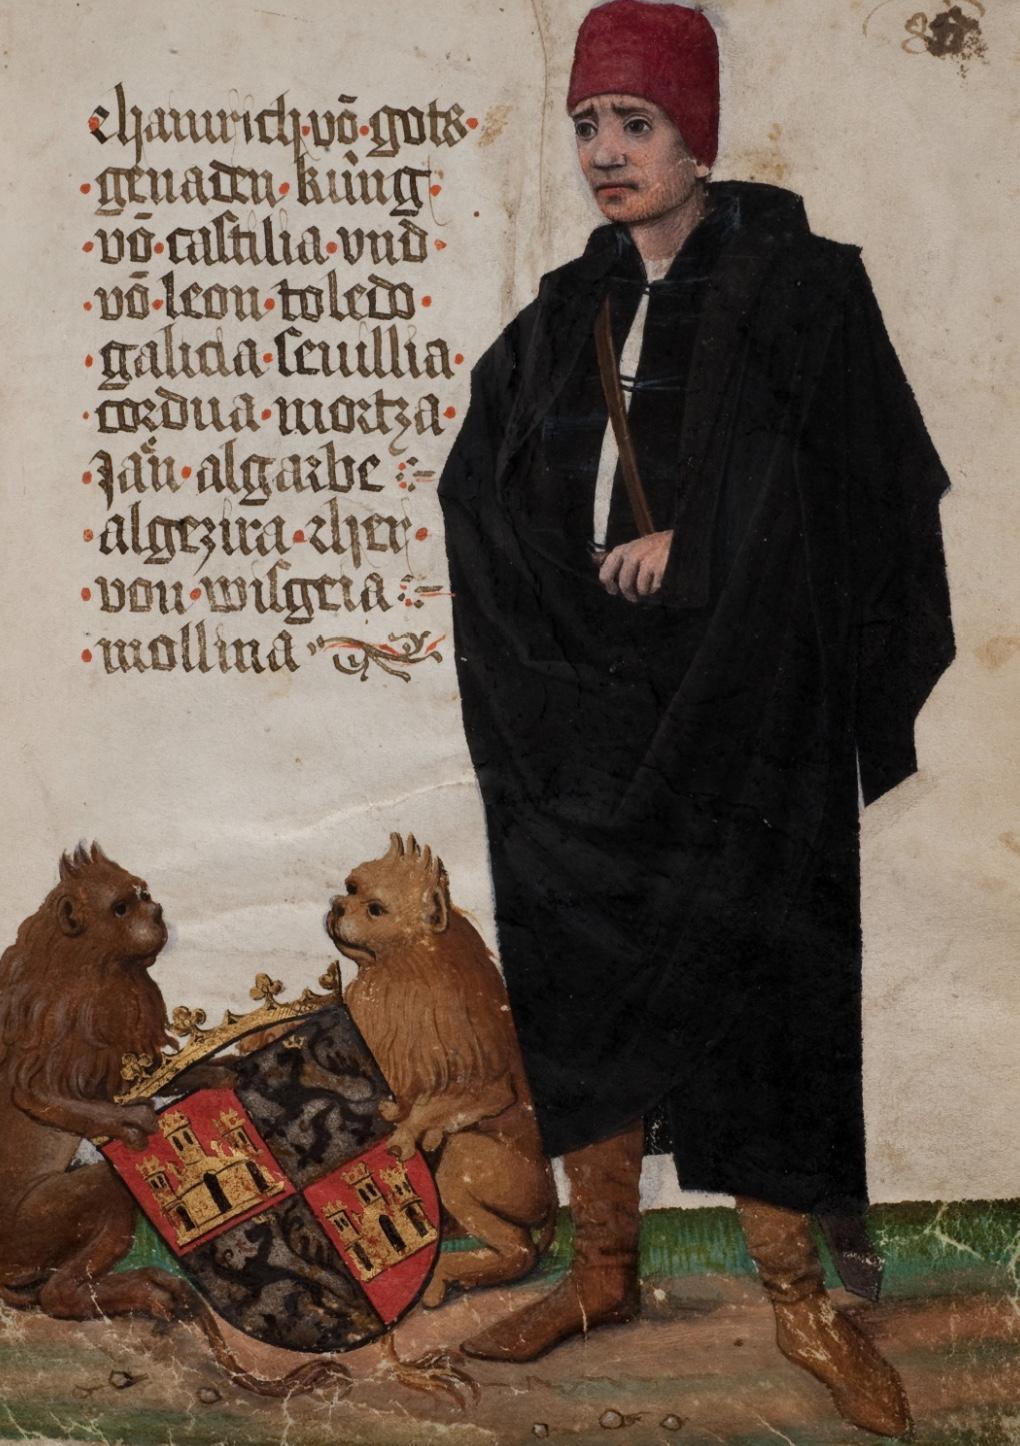 chainrich·vō·gots·
·genaden·küng·
·vō·castilia·vnd·
·vō·leon·toledo·
·galicia·seuillia·
·cordua·mortza·
·Jäen·algarbe
·algezira·rher·
·von·wisgeia
·mollina